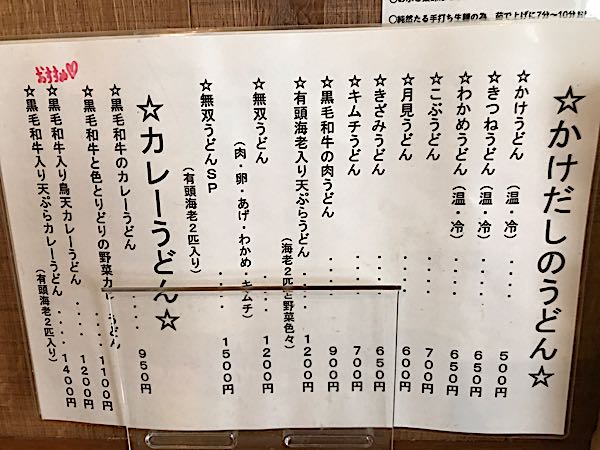 ○純然たる手打ち生麺の為、茹で上げに7分〜10分お
☆かけだしのうどん☆
☆かけうどん （温・冷）････５００円
☆きつねうどん（温・冷）････６５０円
☆わかめうどん（温・冷）････６５０円
☆こぶうどん ････７００円
☆月見うどん ････６００円
☆きざみうどん ････６５０円
☆キムチうどん ････７００円
☆黒毛和牛の肉うどん ････９００円
☆有頭海老入り天ぷらうどん････１２００円
（海老２匹と野菜色々）
☆無双うどん ････１２００円
（肉・卵・あげ・わかめ キムチ）
☆無双うどんＳＰ ････１５００円
（有頭海老２匹入り）
☆カレーうどん☆
☆黒毛和牛のカレーうどん ････９５０円
☆黒毛和牛と色とりどりの野菜カレーうどん ････１１００円
☆黒毛和牛入り鳥天カレーうどん ････１２００円
おすすめ♡
☆黒毛和牛入り天ぷらカレーうどん ････１４００円
（有頭海老２匹入り）